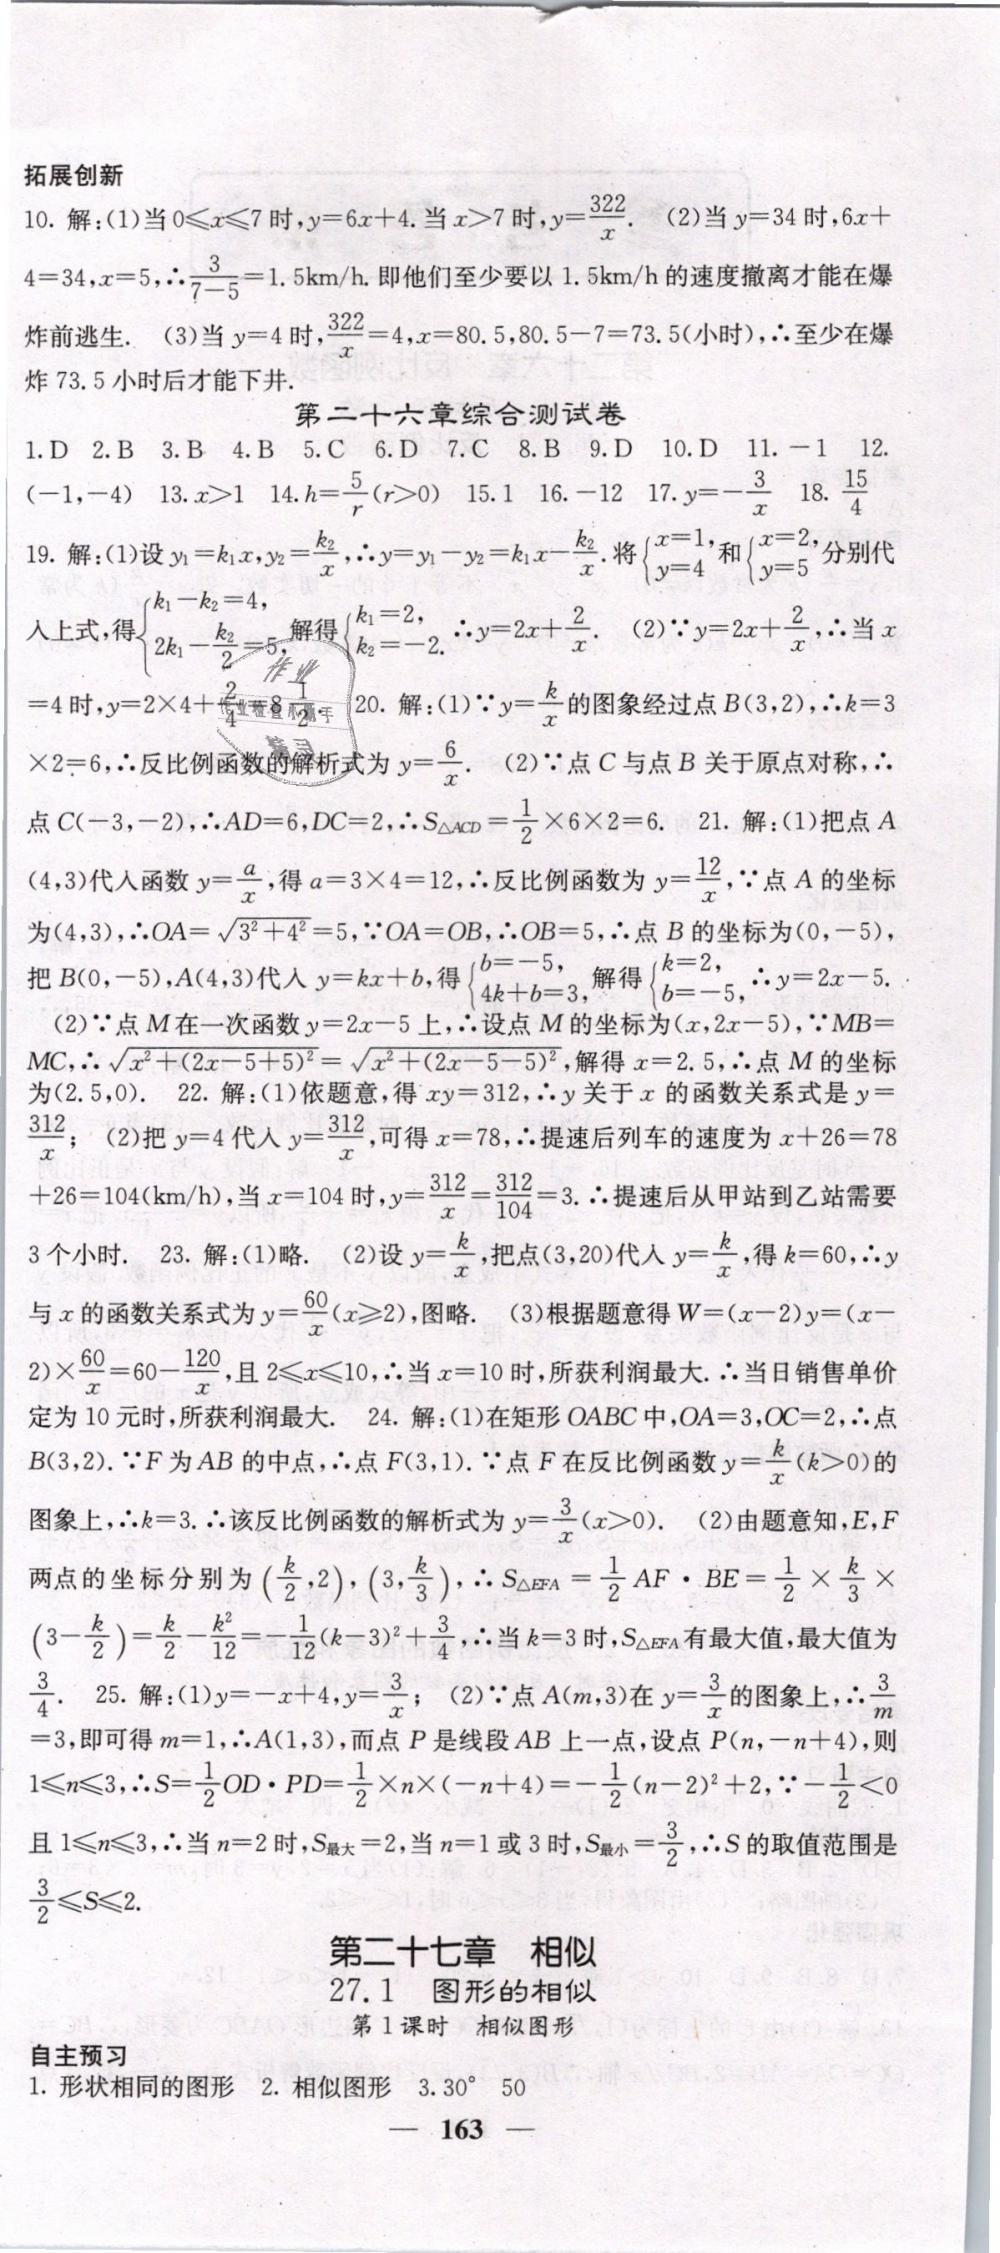 拓展创新
10. 解:(1)当0≤x≤7时,y=6x+4.当x>7时,y=322/x. (2)当y=34时,6x+
4=34,x=5,∴3/(7-5)=1.5km/h.即他们至少要以1.5km/h的速度撤离才能在爆
炸前逃生. (3)当y=4时,322/x=4,x=80.5,80.5-7=73.5(小时),∴至少在爆
炸73.5小时后才能下井.
第二十六章综合测试卷
1.D 2.B 3.B 4.B 5.C 6.D 7.C 8.B 9.D 10.D 11.-1 12.
(-1,-4) 13.x>1 14.h=5/r(r>0) 15.1 16.-12 17.y=-3/x 18.15/4
19. 解:(1)设y₁=k₁x,y₂=k₂/x,∴y=y₁-y₂=k₁x-k₂/x.将{x=1, y=4 和{x=2, y=5 分别代
入上式,得{k₁-k₂=4, 2k₁-k₂/2=5, 解得{k₁=2, k₂=-2. ∴y=2x+2/x. (2)∵y=2x+2/x,∴当x
=4时,y=2×4+2/4=8 1/2. 20. 解:(1)∵y=k/x的图象经过点B(3,2),∴k=3
×2=6,∴反比例函数的解析式为y=6/x. (2)∵点C与点B关于原点对称,∴
点C(-3,-2),∴AD=6,DC=2,∴S△ACD=1/2×6×2=6. 21. 解:(1)把点A
(4,3)代入函数y=a/x,得a=3×4=12,∴反比例函数为y=12/x,∵点A的坐标
为(4,3),∴OA=√(3²+4²)=5,∵OA=OB,∴OB=5,∴点B的坐标为(0,-5),
把B(0,-5),A(4,3)代入y=kx+b,得{b=-5, 4k+b=3, 解得{k=2, b=-5, ∴y=2x-5.
(2)∵点M在一次函数y=2x-5上,∴设点M的坐标为(x,2x-5),∵MB=
MC,∴√(x²+(2x-5+5)²)=√(x²+(2x-5-5)²),解得x=2.5,∴点M的坐标
为(2.5,0). 22. 解:(1)依题意,得xy=312,∴y关于x的函数关系式是y=
312/x; (2)把y=4代入y=312/x,可得x=78,∴提速后列车的速度为x+26=78
+26=104(km/h),当x=104时,y=312/x=312/104=3.∴提速后从甲站到乙站需要
3个小时. 23. 解:(1)略. (2)设y=k/x,把点(3,20)代入y=k/x,得k=60,∴y
与x的函数关系式为y=60/x(x≥2),图略. (3)根据题意得W=(x-2)y=(x-
2)×60/x=60-120/x,且2≤x≤10,∴当x=10时,所获利润最大.∴当日销售单价
定为10元时,所获利润最大. 24. 解:(1)在矩形OABC中,OA=3,OC=2,∴点
B(3,2).∵F为AB的中点,∴点F(3,1).∵点F在反比例函数y=k/x(k>0)的
图象上,∴k=3.∴该反比例函数的解析式为y=3/x(x>0). (2)由题意知,E,F
两点的坐标分别为(k/2,2),(3,k/3),∴S△EFA=1/2AF·BE=1/2×k/3×
(3-k/2)=k/2-k²/12=-1/12(k-3)²+3/4,∴当k=3时,S△EFA有最大值,最大值为
3/4. 25. 解:(1)y=-x+4,y=3/x; (2)∵点A(m,3)在y=3/x的图象上,∴3/m
=3,即可得m=1,∴A(1,3),而点P是线段AB上一点,设点P(n,-n+4),则
1≤n≤3,∴S=1/2OD·PD=1/2×n×(-n+4)=-1/2(n-2)²+2,∵-1/2<0
且1≤n≤3,∴当n=2时,S最大=2,当n=1或3时,S最小=3/2,∴S的取值范围是
3/2≤S≤2.
第二十七章 相似
27.1 图形的相似
第1课时 相似图形
自主预习
1. 形状相同的图形 2. 相似图形 3.30° 50
— 163 —